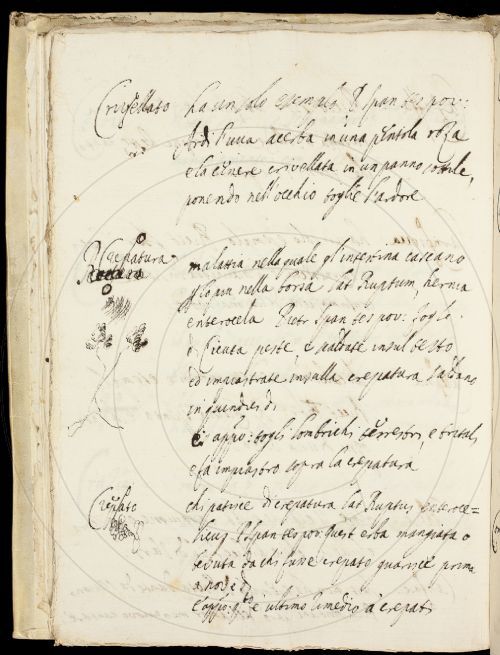 Crivellato ha un solo esempio P. Span tes pov:
Ardi l'uva acerba in una pentola roza
e la cenere crivellata in un panno sottile,
ponendo nell'occhio toglie l'ardore
Crepatura malattia nella quale gl'intestina cascano
nella borsa lat Ruptum, hernia
enterocela Pietr Span tes pov: togli
di Cicuta peste, e insul testo
ed impiastrate insulla crepatura saldano
in quindici dì
E appo: togli lombrichi terrestri, e tritali
e fa impiastro sopra la crepatura
Crepato chi patisce di crepatura lat Ruptus enteroce=
licus P Span tes pov: quest erba mangiata o
bevuta da chi fusse crepato guarisce prima
a nove dì
E appo: e ultimo rimedio a crepati